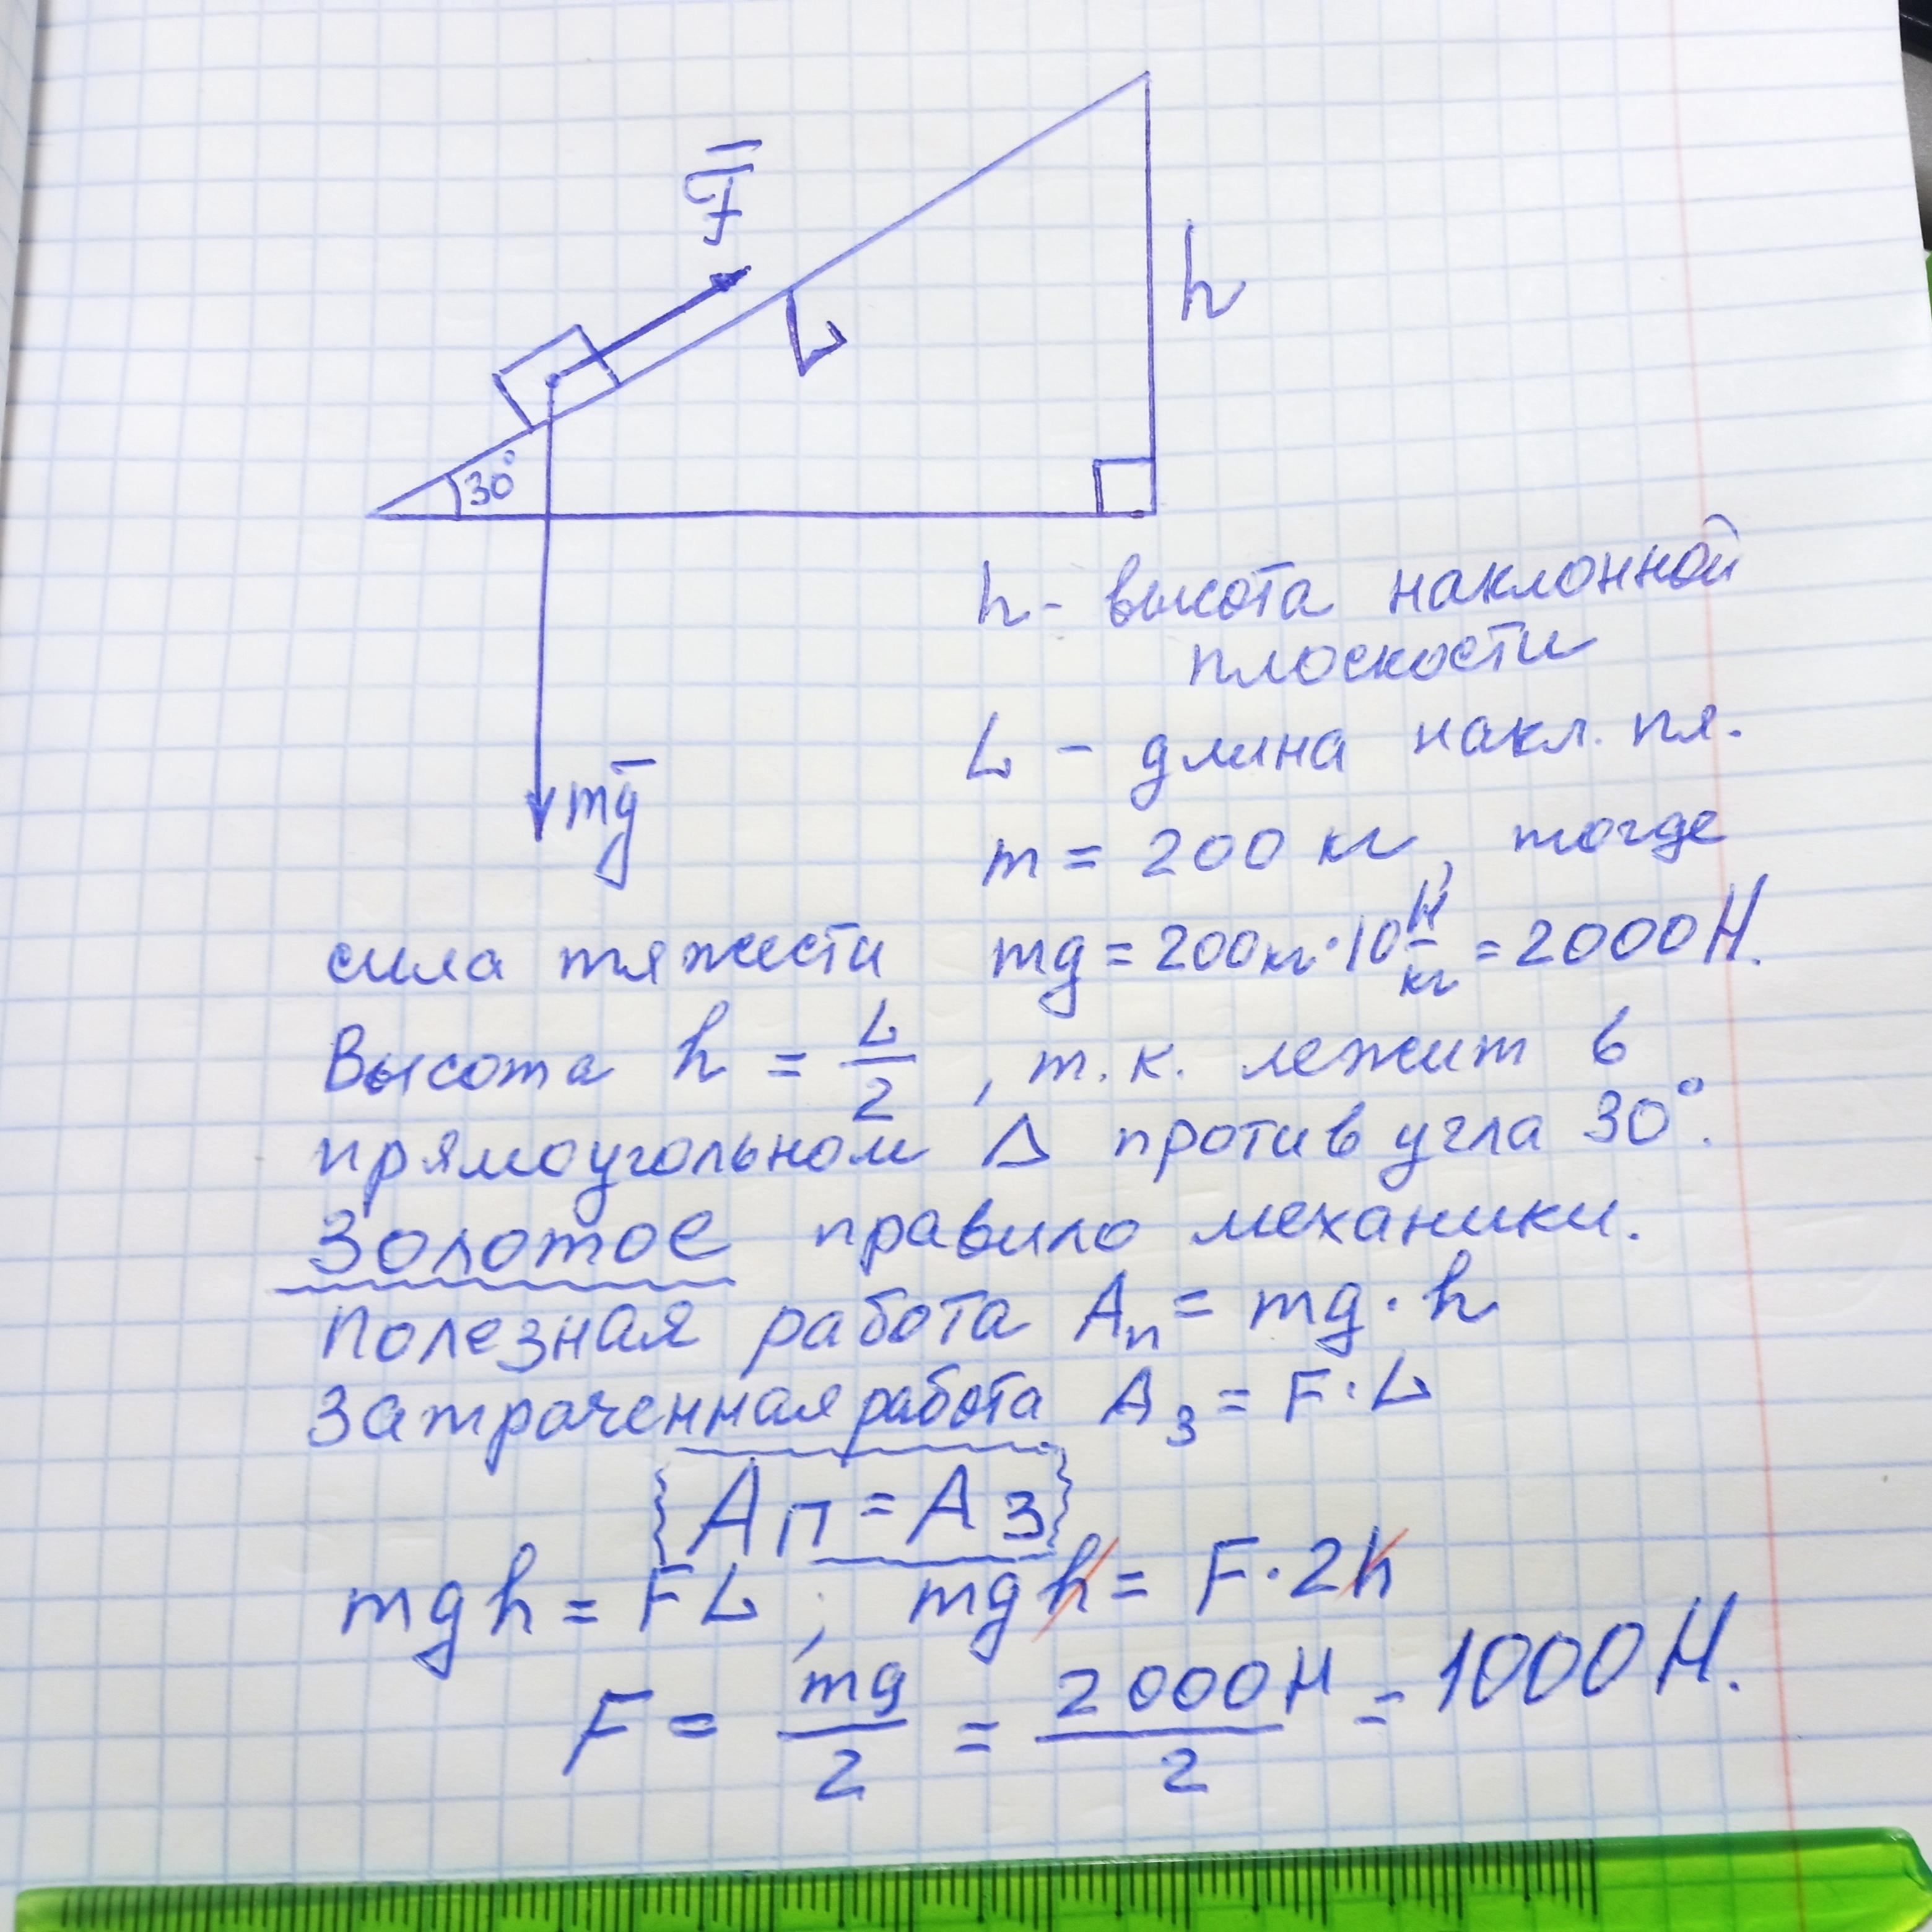 F̅
h
L
30°
mg̅
h - высота наклонной
плоскости
L - длина накл. пл.
m = 200 кг, тогде
сила тяжести mg = 200кг·10 Н/кг = 2000 Н.
Высота h = L/2, т.к. лежит в
прямоугольном Δ против угла 30°.
Золотое правило механики.
Полезная работа Aп = mg·h
Затраченная работа Aз = F·L
{Aп = Aз}
mgh = FL; mgh = F·2h
F = mg/2 = 2000Н/2 = 1000 Н.